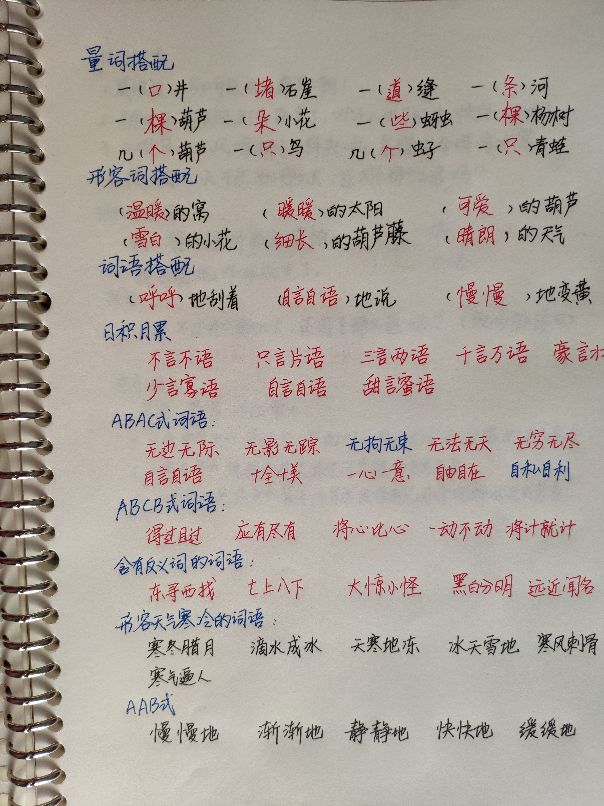 量词搭配
一(口)井 一(堵)石崖 一(道)缝 一(条)河
一(棵)葫芦 一(朵)小花 一(些)蚜虫 一(棵)杨树
几(个)葫芦 一(只)鸟 几(个)虫子 一(只)青蛙
形容词搭配
(温暖)的窝 (暖暖)的太阳 (可爱)的葫芦
(雪白)的小花 (细长)的葫芦藤 (晴朗)的天气
词语搭配
(呼呼)地刮着 (自言自语)地说 (慢慢)地变黄
日积月累
不言不语 只言片语 三言两语 千言万语 豪言壮
少言寡语 自言自语 甜言蜜语
ABAC式词语:
无边无际 无影无踪 无拘无束 无法无天 无穷无尽
自言自语 十全十美 一心一意 自由自在 自私自利
ABCB式词语:
得过且过 应有尽有 将心比心 一动不动 将计就计
含有反义词的词语:
东寻西找 七上八下 大惊小怪 黑白分明 远近闻名
形容天气寒冷的词语:
寒冬腊月 滴水成冰 天寒地冻 冰天雪地 寒风刺骨
寒气逼人
AAB式
慢慢地 渐渐地 静静地 快快地 缓缓地